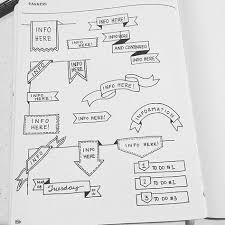 BANNERS
INFO
HERE
INFO HERE!
INFO HERE
AND CONTINUED
INFO HERE
INFO HERE!
INFO HERE!
INFO
HERE!
INFORMATION
INFO
HERE!
INFO
HERE
INFO
HERE
INFO HERE!
Tuesday
1 TO DO #1
2 TO DO #2
3 TO DO #3